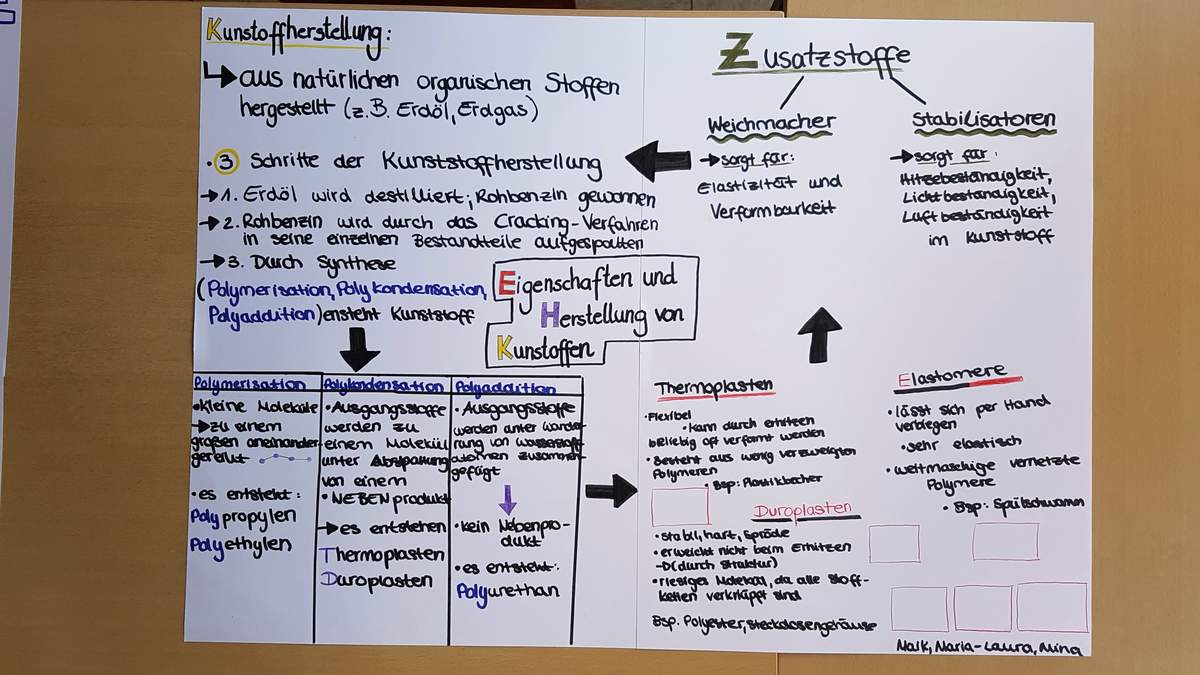 Kunstoffherstellung:
aus natürlichen organischen Stoffen
hergestellt (z.B. Erdöl, Erdgas)
• 3 Schritte der Kunststoffherstellung
→ 1. Erdöl wird destilliert; Rohbenzin gewonnen
→ 2. Rohbenzin wird durch das Cracking-Verfahren
in seine einzelnen Bestandteile aufgespalten
→ 3. Durch Synthese
(Polymerisation, Polykondensation,
Polyaddition) ensteht Kunststoff
Eigenschaften und
Herstellung von
Kunstoffen
Zusatzstoffe
Weichmacher
→ sorgt für:
Elastizität und
Verformbarkeit
Stabilisatoren
→ sorgt für:
Hitzebeständigkeit,
Lichtbeständigkeit,
Luftbeständigkeit
im Kunststoff
Polymerisation
• kleine Moleküle
→ zu einem
großen aneinander
gereiht
• es entsteht:
Polypropylen
Polyethylen
Polykondensation
• Ausgangsstoffe
werden zu
einem Molekül
unter Abspaltung
von einem
• NEBENprodukt
→ es entstehen
Thermoplasten
Duroplasten
Polyaddition
• Ausgangsstoffe
werden unter Wande-
rung von Wasserstoff-
atomen zusammen
gefügt
• kein Nebenpro-
dukt
• es entsteht:
Polyurethan
Thermoplasten
• Flexibel
• kann durch erhitzen
beliebig oft verformt werden
• Besteht aus wenig verzweigten
Polymeren
• Bsp: Plastikbecher
Duroplasten
• stabil, hart, Spröde
• erweicht nicht beim Erhitzen
(durch Struktur)
• riesiges Molekül, da alle Stoff-
ketten verknüpft sind
Bsp. Polyester, Steckdosengehäuse
Elastomere
• lässt sich per Hand
verbiegen
• sehr elastisch
• weitmaschige vernetzte
Polymere
• Bsp: Spülschwamm
Maik, Maria-Laura, Nina